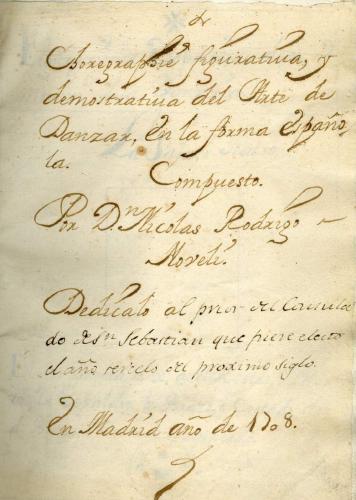 Coregraphie figurativa, y
demostrativa del Arte de
Danzar, en la forma españo
la.
Compuesto.
Por Dn Nicolas Rodrigo
Noveli.
Dedicalo al prior del Consula
do de Sn Sebastian que fuere electo
el año del proximo siglo.
En Madrid año de 1708.